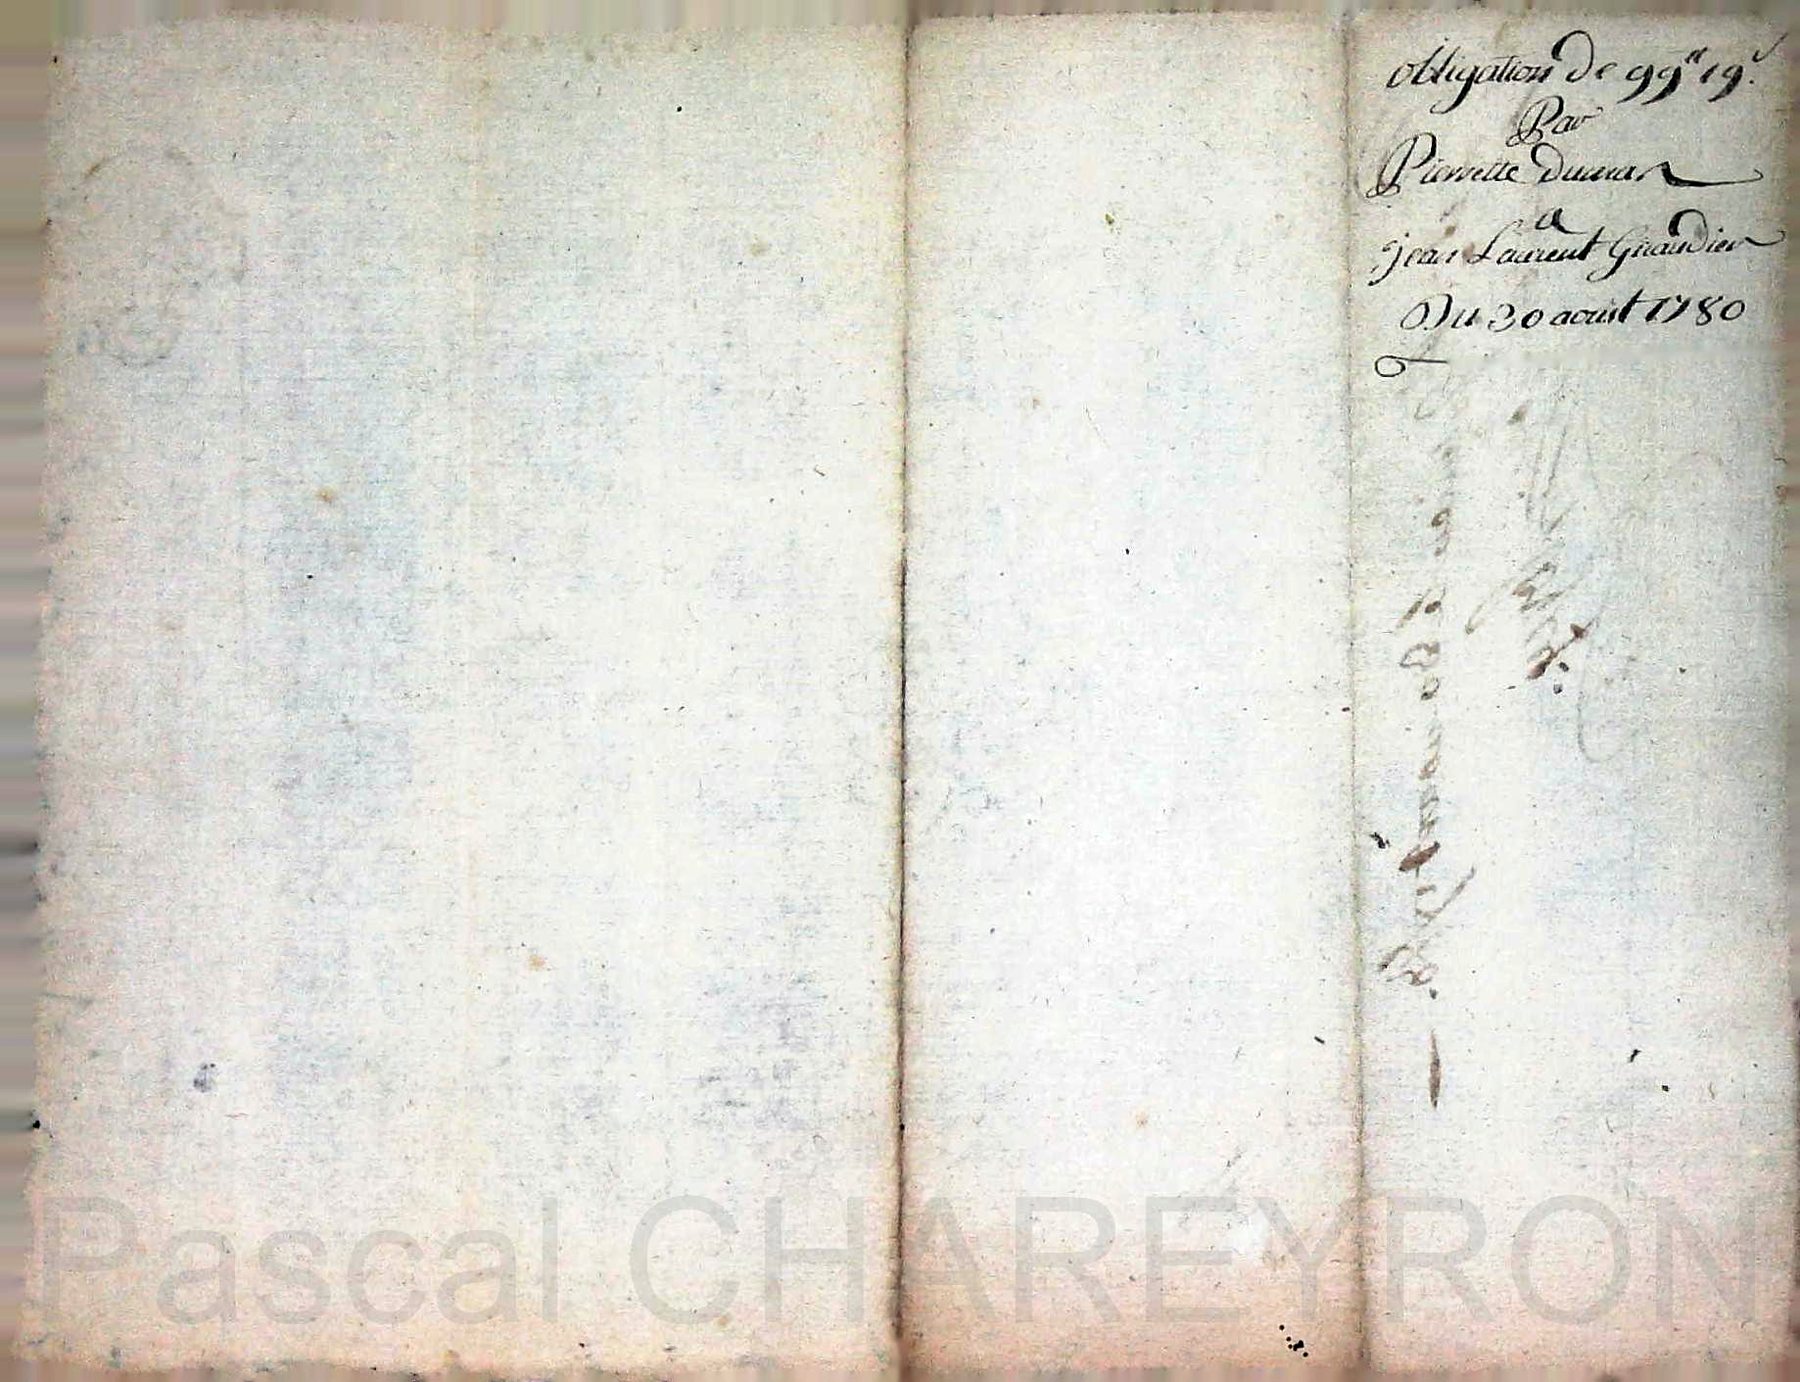 obligation De 99# 19s.
Par
Pierrette Dumas
a
jean Laurent Girardier
Du 30 aoust 1780
Pascal CHAREYRON